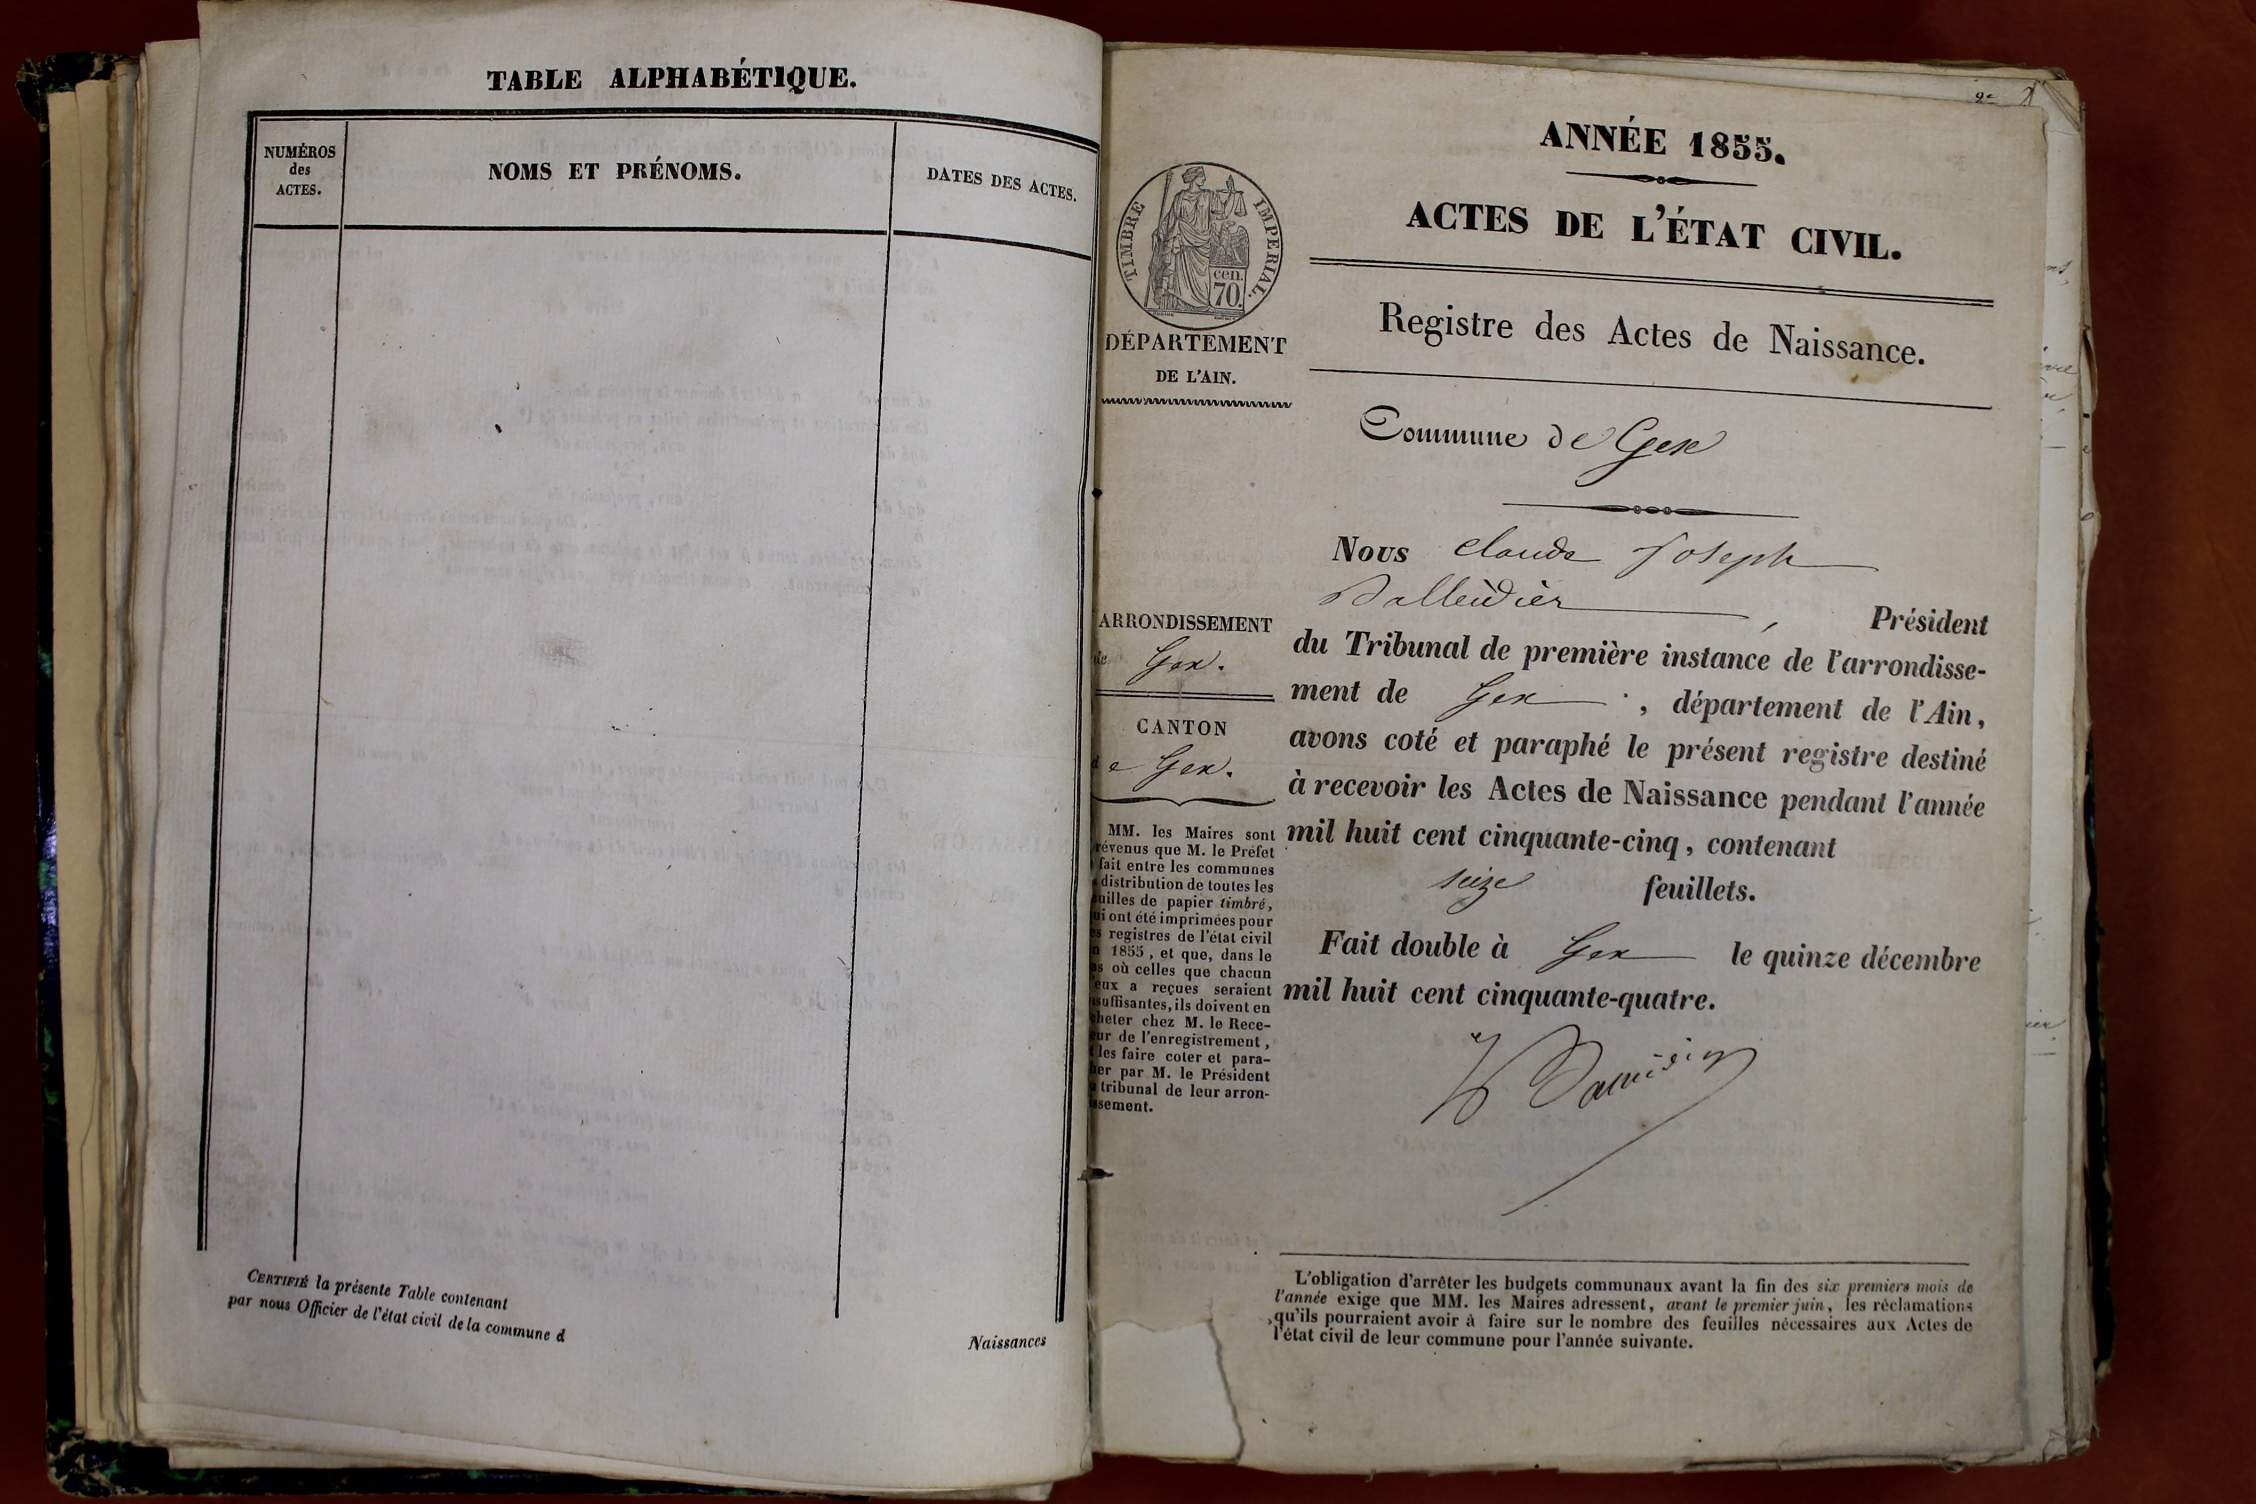 TABLE ALPHABÉTIQUE.
NUMÉROS
des
ACTES.
NOMS ET PRÉNOMS.
DATES DES ACTES.
CERTIFIÉ la présente Table contenant
par nous Officier de l'état civil de la commune d
Naissances
2e
ANNÉE 1855.
ACTES DE L'ÉTAT CIVIL.
Registre des Actes de Naissance.
TIMBRE IMPERIAL.
cen.
70.
DÉPARTEMENT
DE L'AIN.
ARRONDISSEMENT
de Gex.
CANTON
de Gex.
MM. les Maires sont
révenus que M. le Préfet
fait entre les communes
distribution de toutes les
uilles de papier timbré,
ui ont été imprimées pour
es registres de l'état civil
n 1855, et que, dans le
as où celles que chacun
'eux a reçues seraient
suffisantes, ils doivent en
cheter chez M. le Rece-
eur de l'enregistrement,
t les faire coter et para-
her par M. le Président
u tribunal de leur arron-
issement.
Commune de Gex
Nous Claude Joseph
, Président
du Tribunal de première instance de l'arrondisse-
ment de Gex, département de l'Ain,
avons coté et paraphé le présent registre destiné
à recevoir les Actes de Naissance pendant l'année
mil huit cent cinquante-cinq, contenant
seize feuillets.
Fait double à Gex le quinze décembre
mil huit cent cinquante-quatre.
L'obligation d'arrêter les budgets communaux avant la fin des six premiers mois de
l'année exige que MM. les Maires adressent, avant le premier juin, les réclamations
qu'ils pourraient avoir à faire sur le nombre des feuilles nécessaires aux Actes de
l'état civil de leur commune pour l'année suivante.